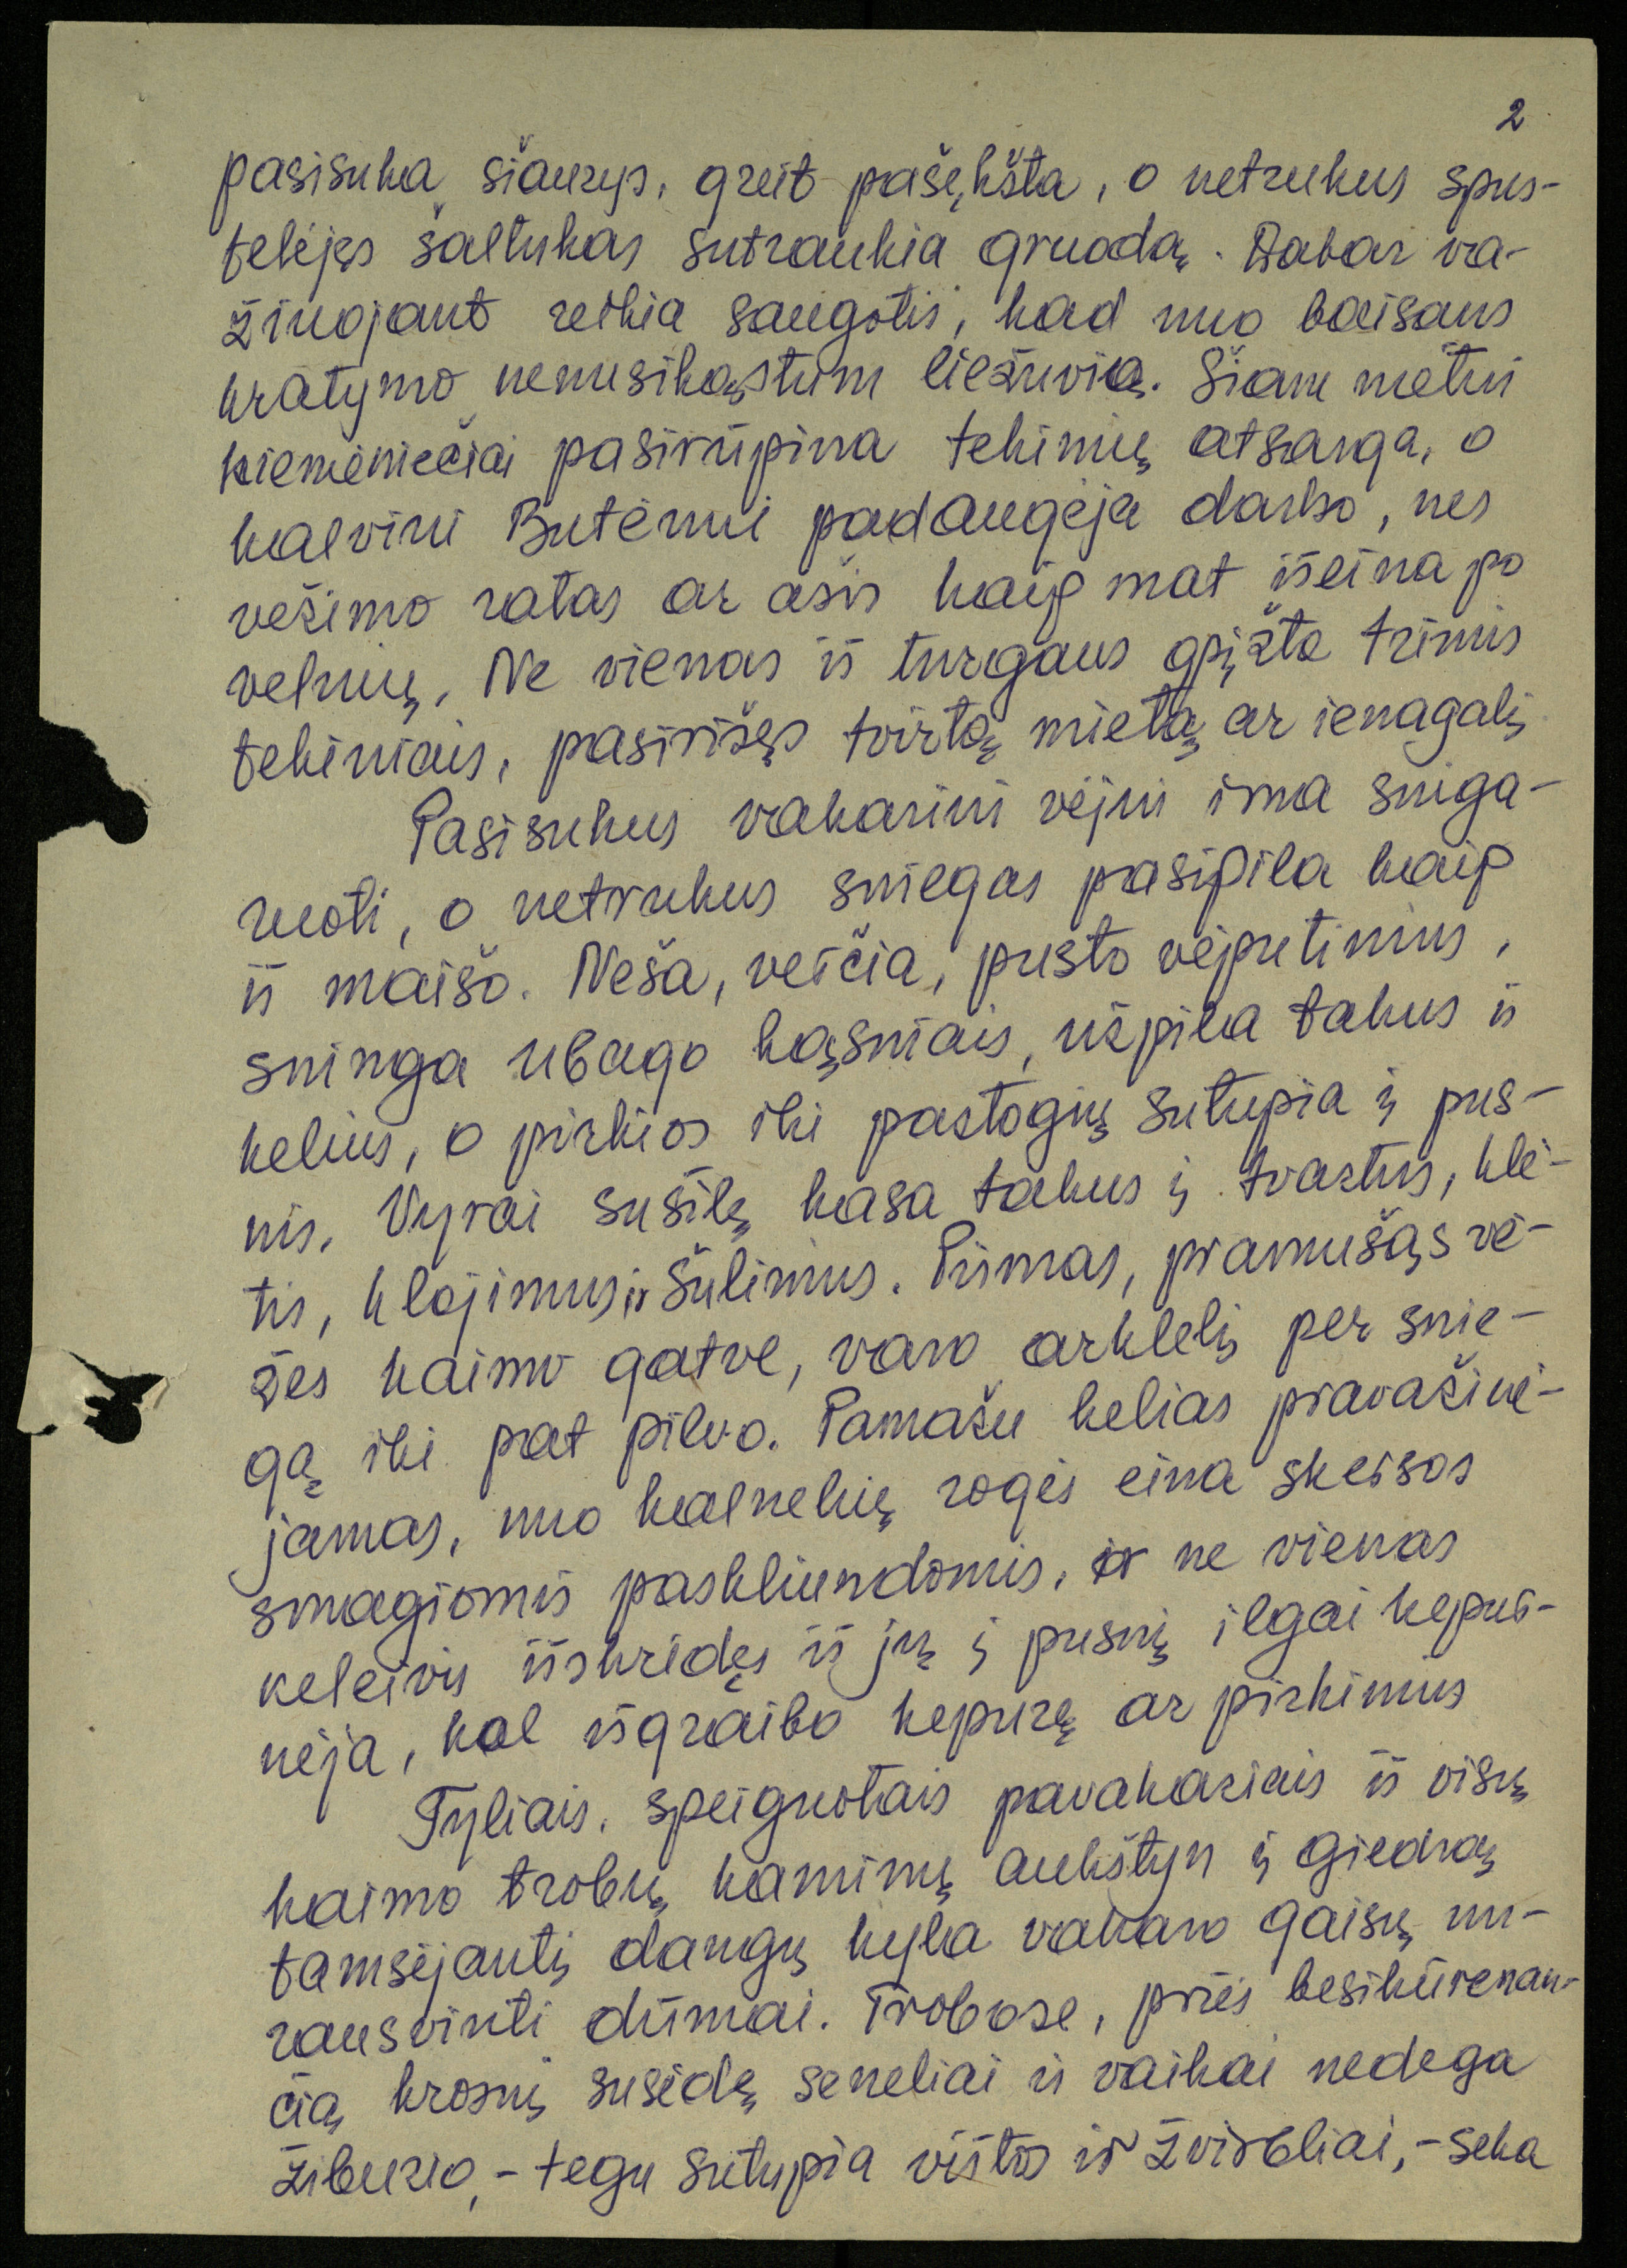 2
pasisuka šiaurys, greit pašąkšta, o netrukus spus-
telėjęs šaltukas sutraukia gruodą. Dabar va-
žinojant reikia saugotis, kad nuo baisaus
kratymo nenusikąstum liežuvią. Šiam metui
kiemeniečiai pasirūpina tekinių atsarga, o
kalviui Butėnui padaugėja darbo, nes
vežimo ratas ar ašis kaip mat išeina po
velnių. Ne vienas iš turgaus grįžta trimis
tekiniais, pasirišęs tvirtą mietą ar ienagalį
Pasisukus vakariniui vėjui ima sniga-
ruoti, o netrukus sniegas pasipila kaip
iš maišo. Neša, verčia, pusto vėjputinius,
sninga ubago kąsniais, užpila takus ir
kelius, o pirkios iki pastogių sutupia į pus-
nis. Vyrai sušilę kasa takus į tvartus, klė-
tis, klojimus ir šulinius. Pirmas, pramušąs vė-
žes kaimo gatve, varo arklelį per snie-
gą iki pat pilvo. Pamažu kelias pravažinė-
jamas, nuo kalnelių rogės eina skersos
smagiomis paskliundomis, ir ne vienas
keleivis išskridęs iš jų į pusnį ilgai kepur-
nėja, kol išgraibo kepurę ar pirkinius
Tyliais, speiguotais pavakariais iš visų
kaimo trobų kaminų aukštyn į giedrą
tamsėjantį dangų kyla vakaro gaisų nu-
rausvinti dūmai. Trobose, prieš besikūrenan-
čią krosnį susėdę seneliai ir vaikai nedega
žiburio, - tegu sutupia vištos ir žvirbliai, - seka